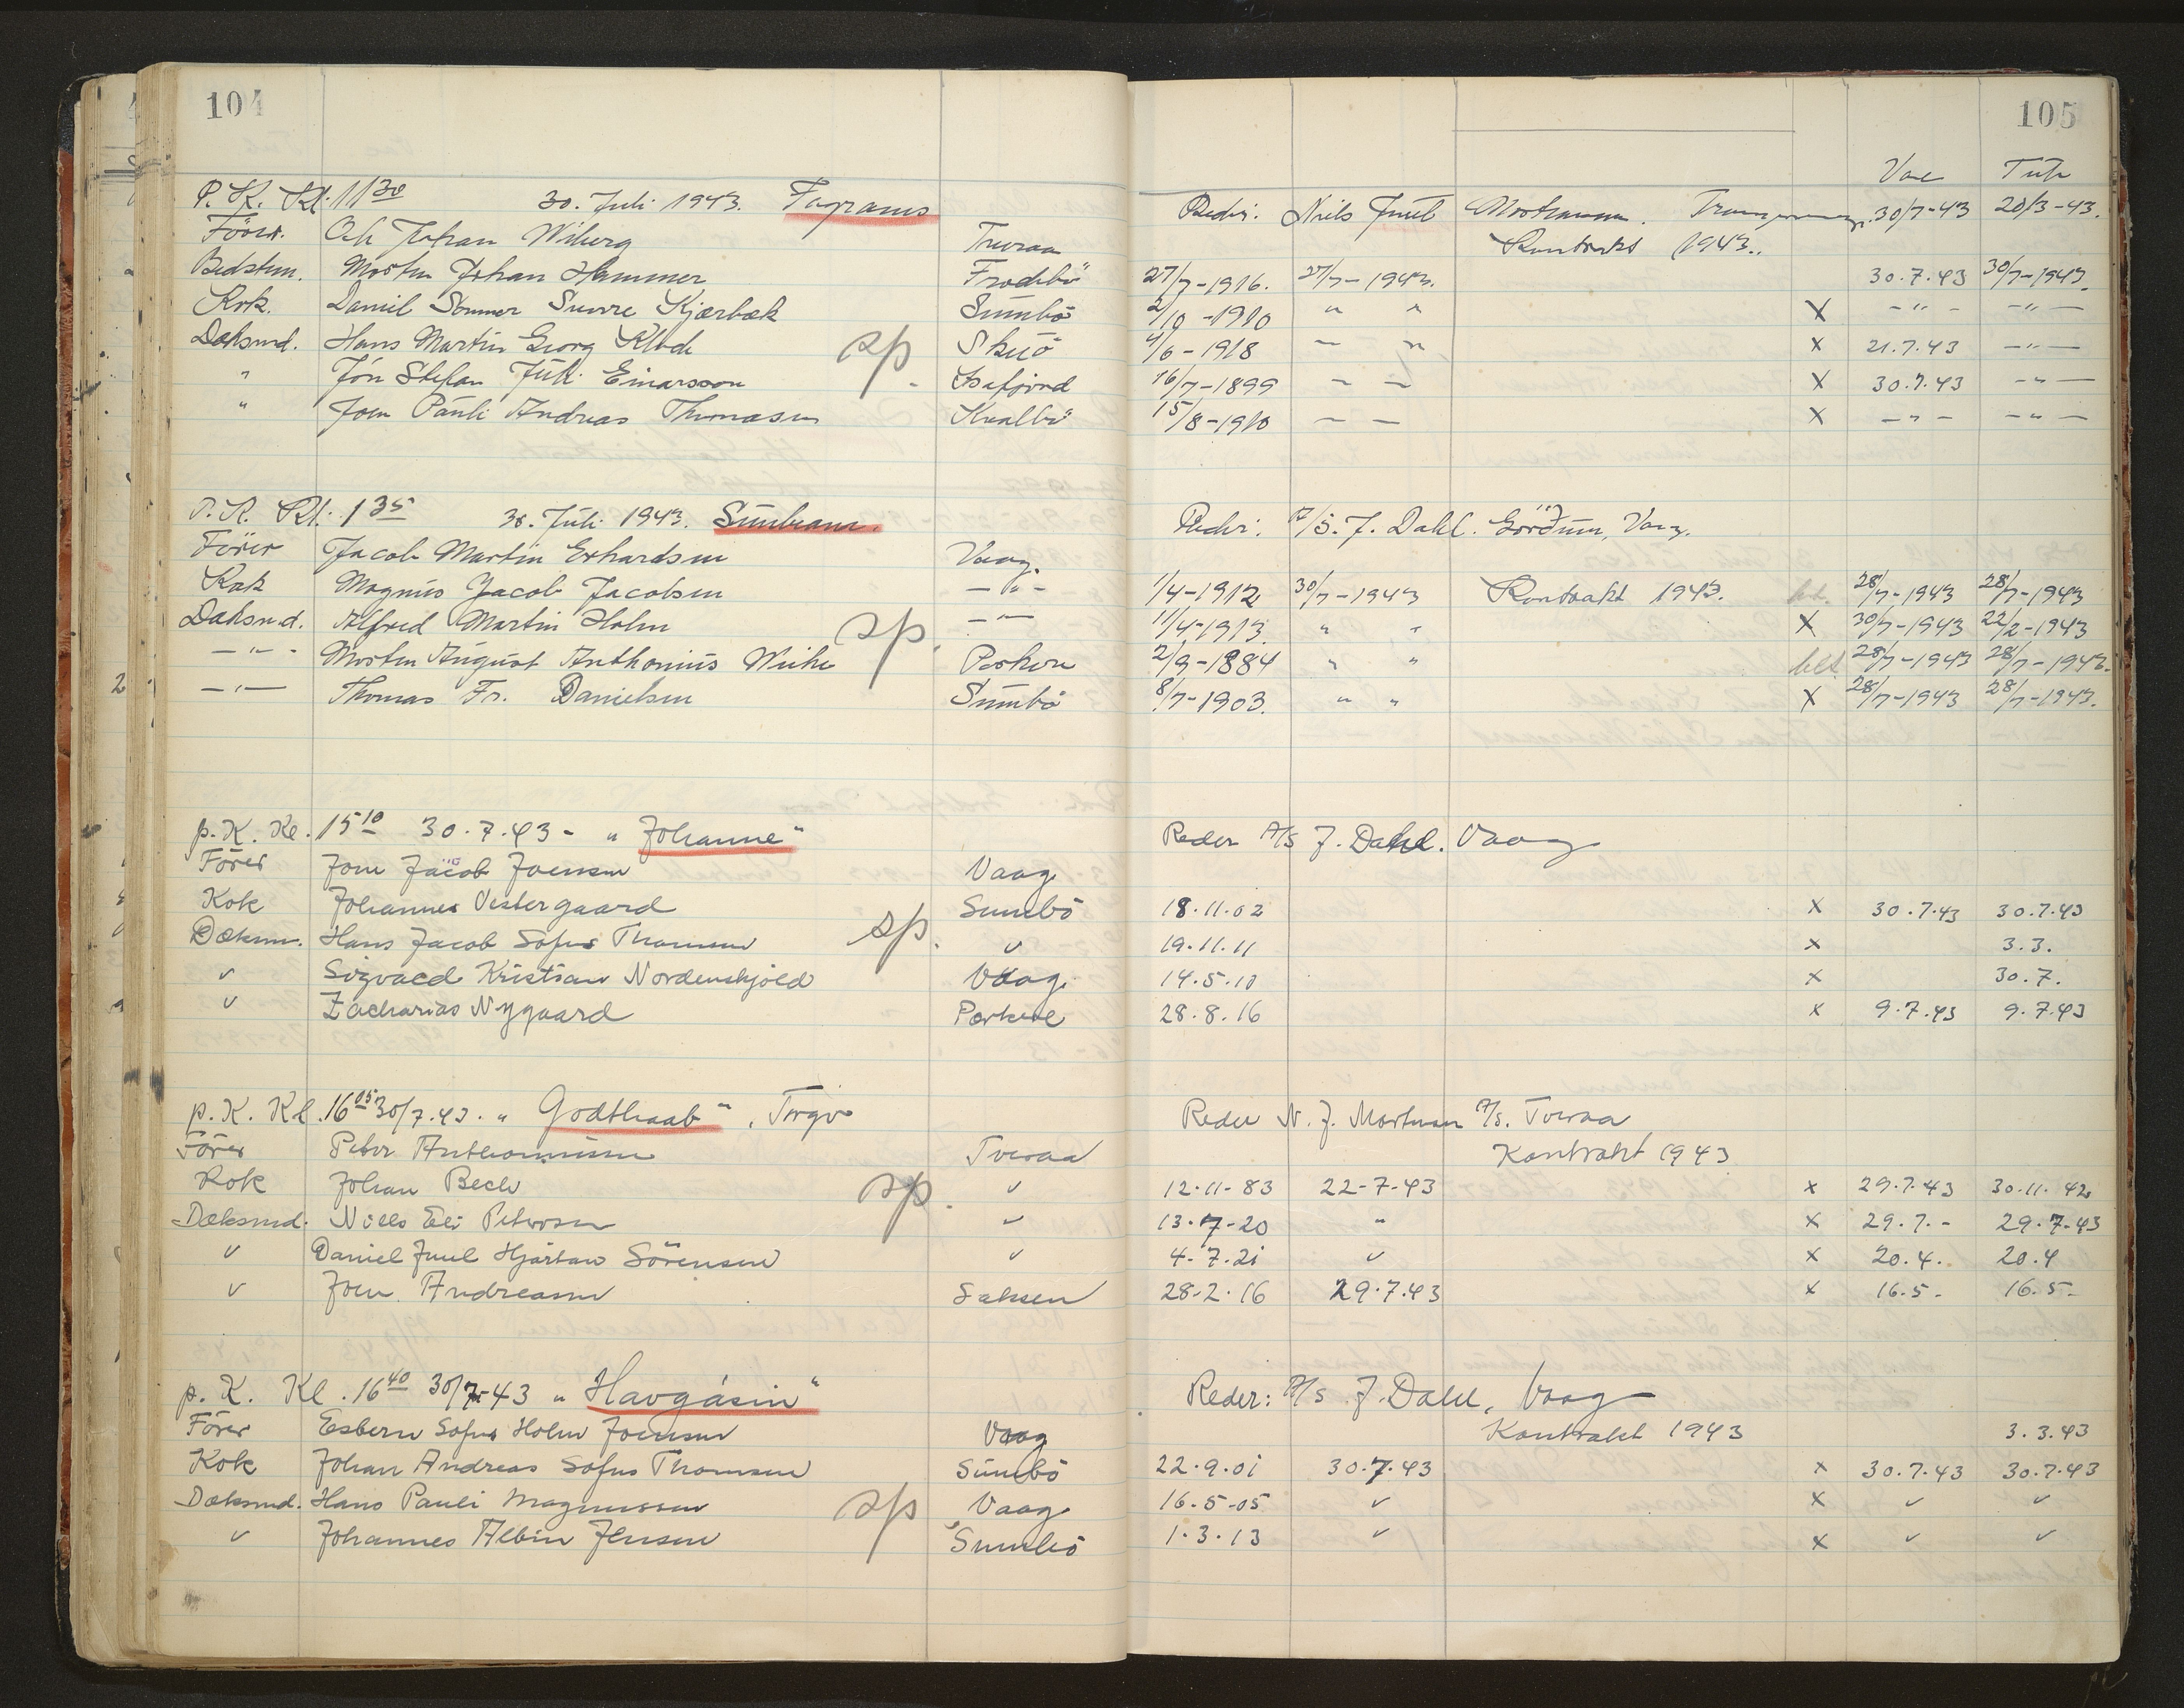 104
105
Vac Tub
P. K. Kl. 11 30 30. Juli 1943. Fagranes Rederi. Niels Juul Mortensen. Trangisvaag. 30/7-43 20/3-43.
Förer. Ole Johan Wiberg Tveraa Kontrakt 1943.
Bedstm. Morten Johan Hammer Frodebö 27/7-1916. 27/7-1943. 30.7.43 30/7-1943.
Kok. Daniel Sommer Sverre Kjærbæk Sumbö 2/10-1910 " " X -"- -"-
Daksmd. Hans Martin Georg Klodt sp. Skuö 4/6-1918 - " X 21.7.43 -"-
" Jón Stefan Júlí Einarsson Isafjord 16/7-1899 - - X 30.7.43 -"-
" Joen Pauli Andreas Thomasen Kvalbö 15/8-1910 - - X -"- -"-
P. K. Kl. 1 35 30. Juli 1943. Sunbeam. Rederi. A/S. J. Dahl. Vaag.
Förer Jacob Martin Erhardsen Vaag.
Kok Magnus Jacob Jacobsen -"- 1/4-1912 30/7-1943 Kontrakt 1943. bet. 28/7-1943 28/7-1943
Daksmd. Alfred Martin Holm sp. -"- 11/4-1913. " " X 30/7-1943 22/2-1943
-"- Morten August Anthonius Weihe Porkere 2/9-1884 " " bet 28/7-1943 28/7-1943.
-"- Thomas Fr. Danielsen Sumbö 8/7-1903. " " X 28/7-1943 28/7-1943.
p. K. Kl. 15 10 30.7.43 - "Johanne" Reder A/S J. Dahl. Vaag
Förer Jone Jacob Joensen Vaag
Kok Johannes Vestergaard Sumbö 18.11.02 x 30.7.43 30.7.43
Dæksm. Hans Jacob Sofus Thomsen sp. v 19.11.11 x 3.3.
v Sigvald Kristian Nordenskjold Vaag. 14.5.10 x 30.7.
v Zacharias Nygaard Porkere 28.8.16 x 9.7.43 9.7.43
p. K. Kl. 16 05 30/7.43. "Godthaab", Reder N. J. Mortensen A/S. Tveraa
Förer Peter Anthoniussen Tveraa Kontrakt 1943
Kok Johan Bech sp. v 12.11-83 22-7-43 x 29.7.43 30.11.42
Dæksmd. Niels Eli Petersen v 13.7-20 " x 29.7.- 29.7-43
v Daniel Juul Hjartan Sörensen v 4-7.21 v x 20.4. 20.4
v Joen Andreasen Saksen 28-2.16 29.7.43 x 16.5- 16.5-
p. K. Kl. 16 40 30/7-43 "Havgásin" Reder: A/S J. Dahl, Vaag
Förer Esbern Sofus Holm Joensen Vaag Kontrakt 1943 3.3.43
Kok Johan Andreas Sofus Thomsen Sumbö 22.9.01 30.7.43 x 30.7.43 30.7.43
Dæksmd. Hans Pauli Magnussen sp Vaag 16-5-05 v x v v
v Johannes Albin Jensen Sumbö 1.3.13 v x v v